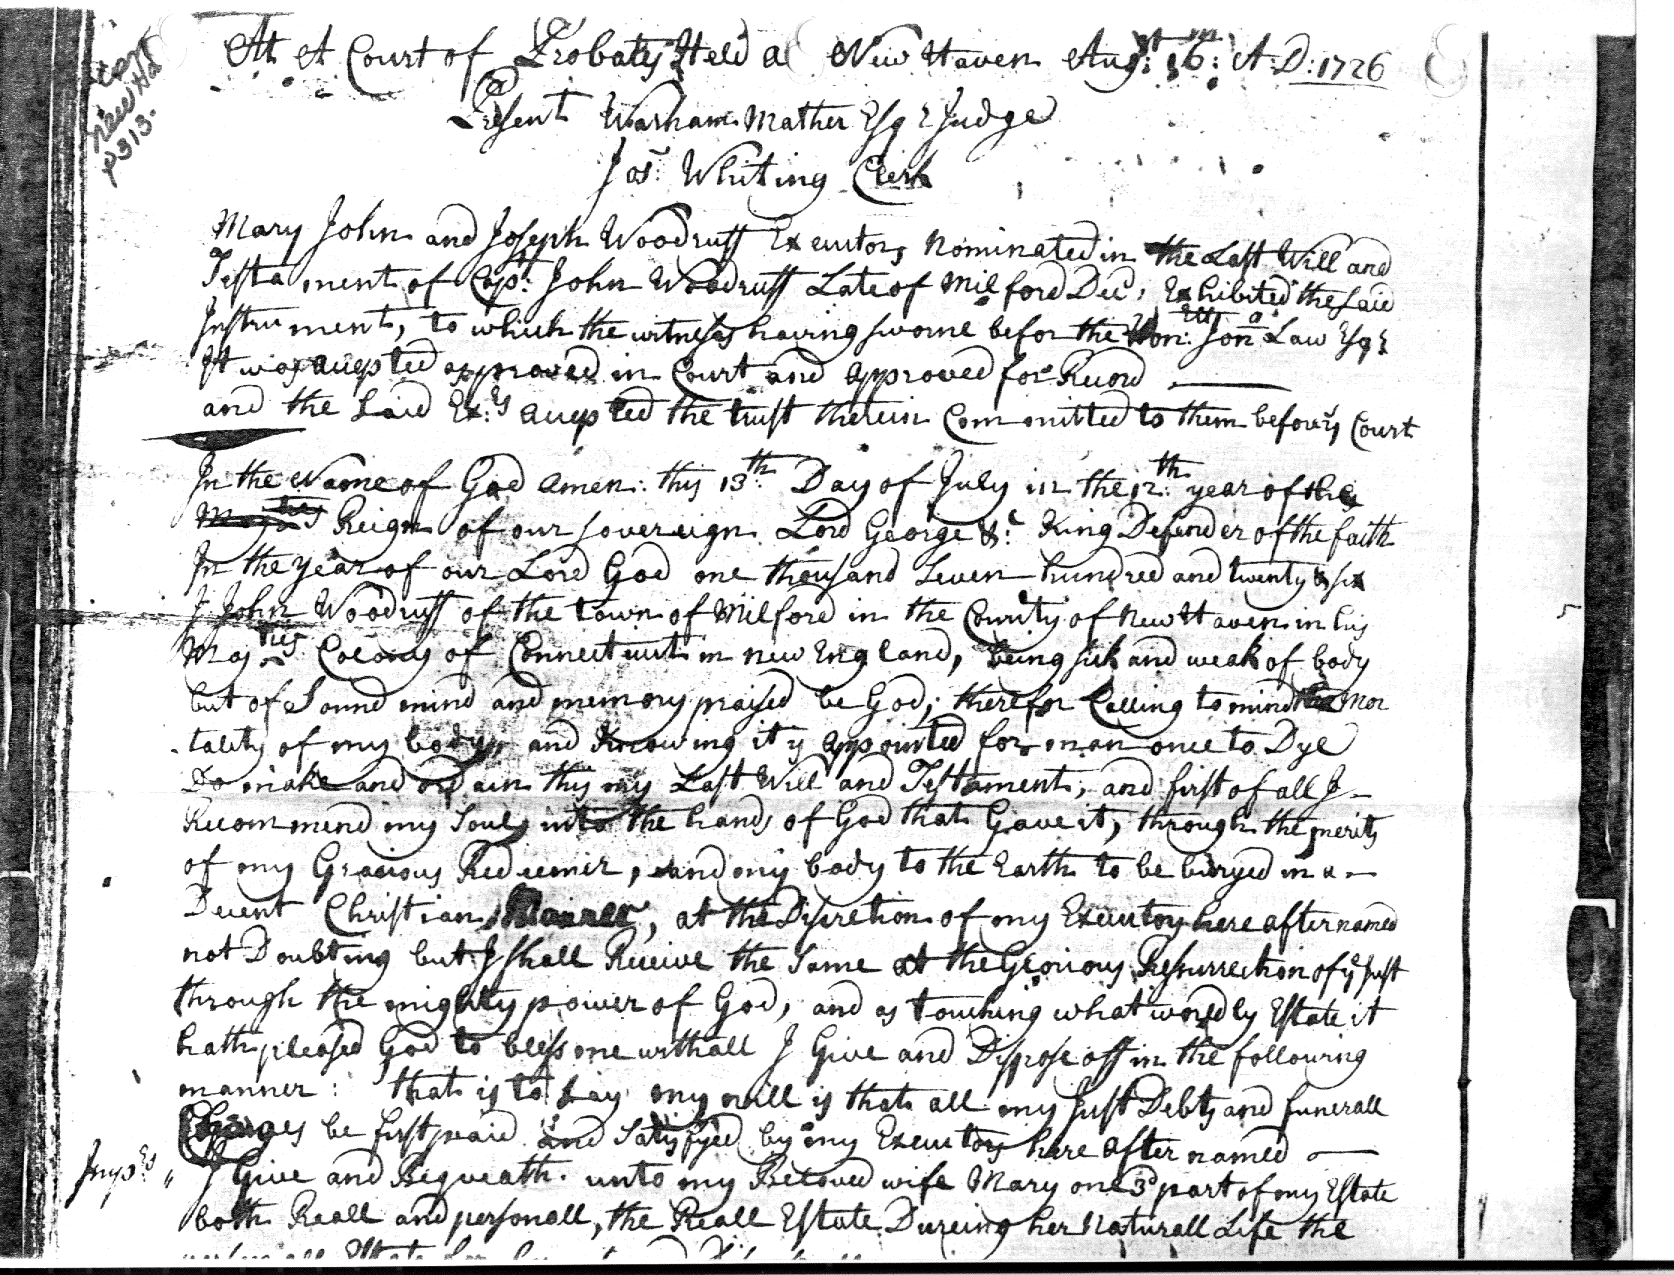 cont
New Ha
p 313.
At A Court of Probates Held a New Haven Augst: 16th: A:D:1726
Present Warham Mather Esqr Judge
Jos: Whiting Clerk
Mary John and Joseph Woodruff Executors Nominated in the Last Will and
Testament of Capt: John Woodruff Late of Milford Decd, Exhibited the Said
Instrument, to which the witneses having sworne befor the Hon: Jonan Law Esqr
It was accepted approved in Court and approved for Record
and the Said Exrs accepted the trust therein Committed to them before ys Court
In the Name of God amen: this 13th: Day of July in the 12th: year of the
Majties Reign of our Sovereign Lord George &c: King Defender of the faith
In the year of our Lord God one thousand Seven hundred and twenty & six
I John Woodruff of the town of Milford in the County of New Haven in his
Majties Colony of Connecticut in new England, being sick and weak of body
but of Sound mind and memory praised be God; therefor Calling to mind the Mor
tality of my body and Knowing it is appointed for man once to Dye
Do make and ordain this my Last Will and Testament, and first of all I
Recommend my Soul into the hands of God that Gave it, through the merits
of my Gracious Redeemer, and my body to the Earth to be buryed in a
Decent Christian Manner, at the Discretion of my Executors here after named
not Doubting but I shall Receive the Same at the Glorious Resurrection of ye Just
through the mighty power of God, and as touching what worldly Estate it
hath pleased God to bless me withall I Give and Dispose off in the following
manner: that is to Say my will is that all my Just Debts and funerall
Charges be first paid and Satisfyed by my Executors here after named
Imprs " I Give and Bequeath unto my Beloved wife Mary one 3d part of my Estate
both Reall and personall, the Reall Estate Dureing her Naturall Life the